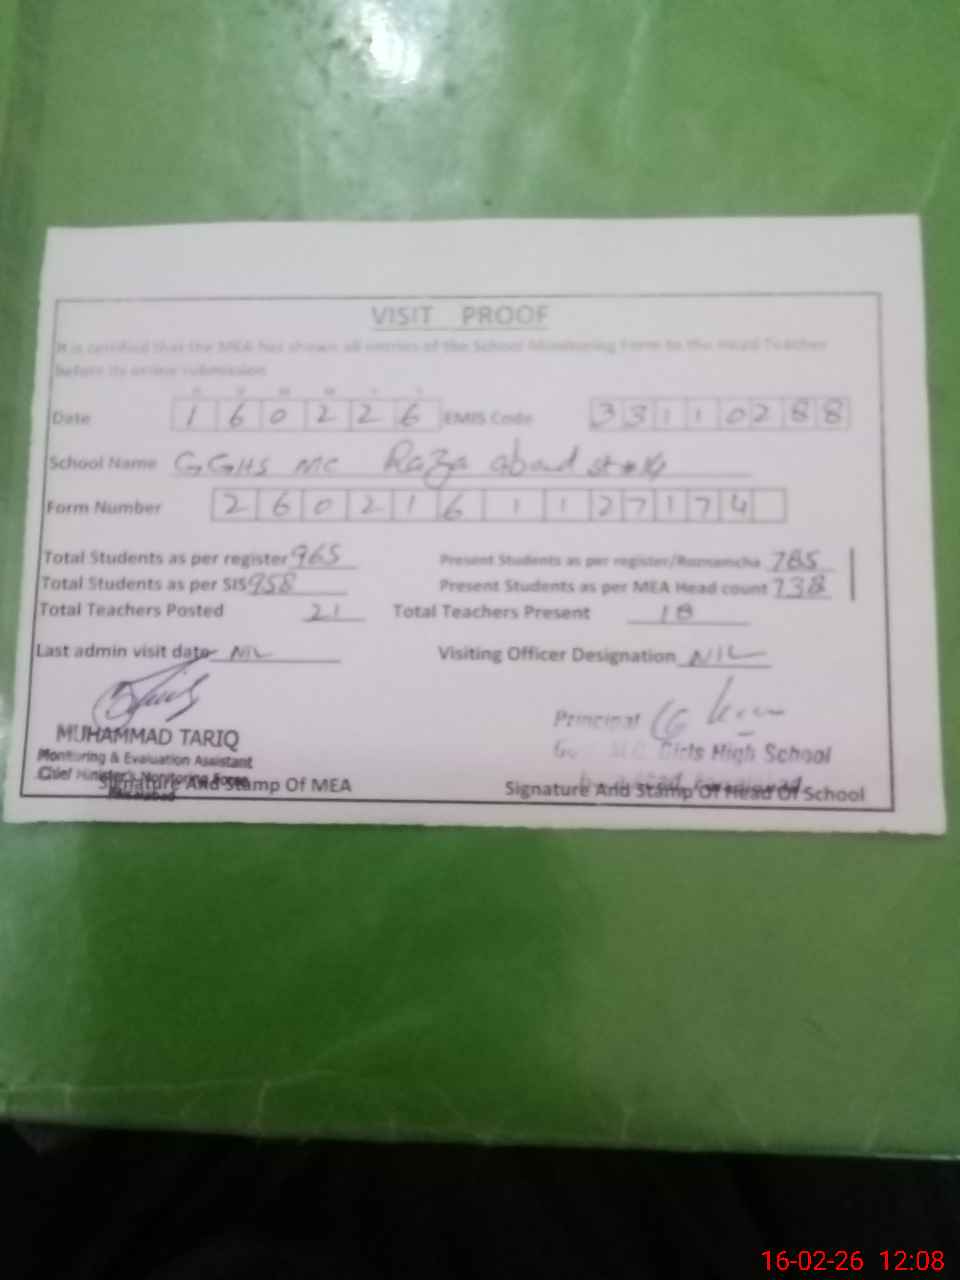 VISIT PROOF
It is certified that the MEA has shown all entries of the School Monitoring Form to the Head Teacher
before its online submission
Date 160226 EMIS Code 33110288
School Name GGHS MC Raza abad st #
Form Number 2602161127174
Total Students as per register 965 Present Students as per register/Roznamcha 785
Total Students as per SIS 958 Present Students as per MEA Head count 738
Total Teachers Posted 21 Total Teachers Present 18
Last admin visit date NIL Visiting Officer Designation NIL
MUHAMMAD TARIQ Principal
Monitoring & Evaluation Assistant M.C. Girls High School
Chief Minister's Monitoring Force
Faisalabad
Signature And Stamp Of MEA Signature And Stamp Of Head Of School
16-02-26 12:08